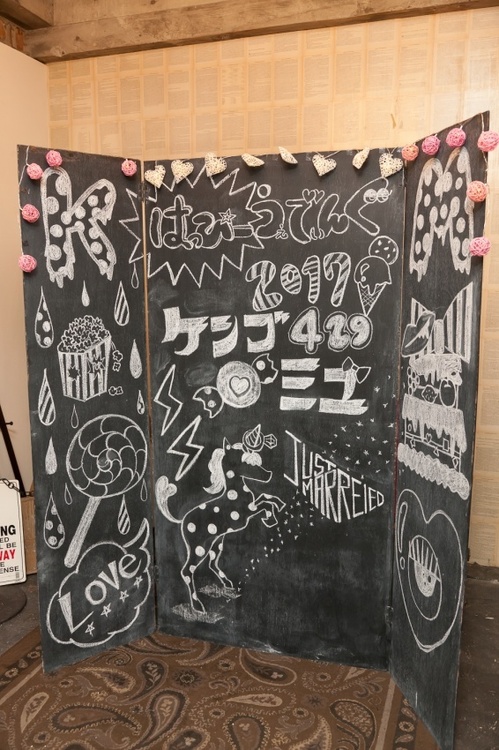 K
はっぴーうぇでぃんぐ
M
2017
ケンゴ 429
ミユ
JUST
MARREIED
Love
NG
ED
LL BE
WAY
E
ENSE